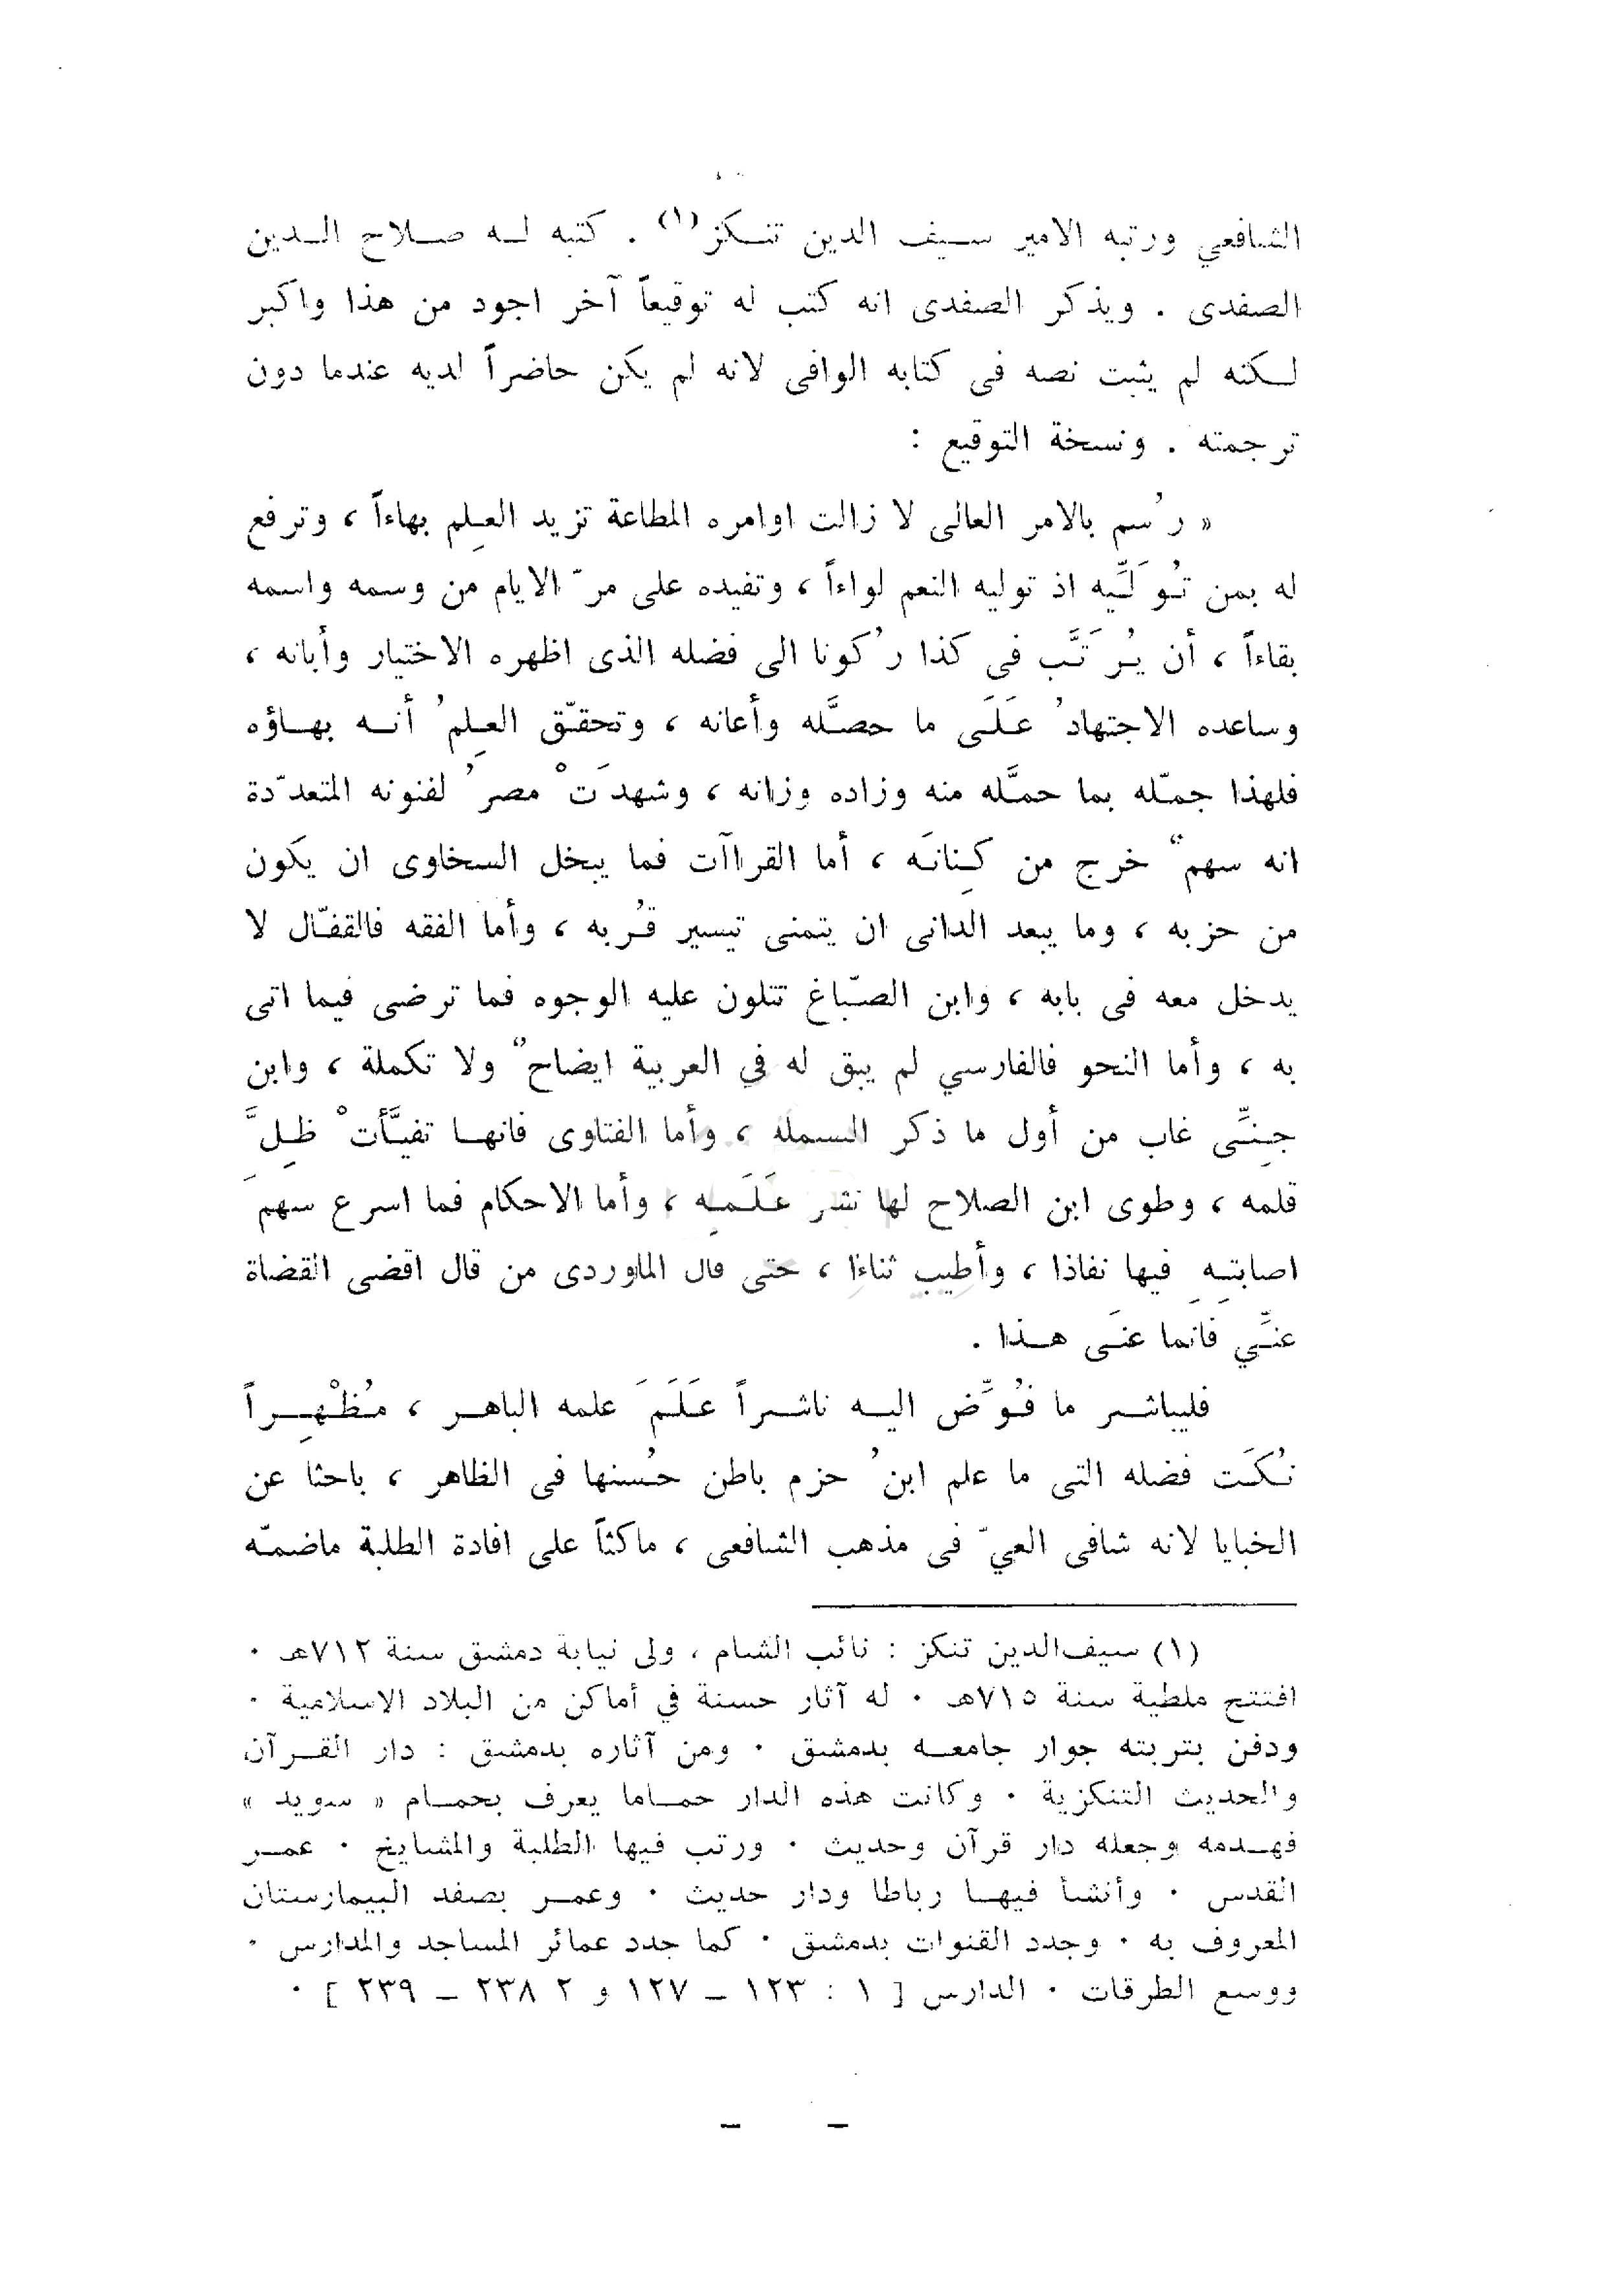 الشافعي ورتبه الامير سيف الدين تنكز(١) . كتبه له صلاح الدين
الصفدى . ويذكر الصفدى انه كتب له توقيعاً آخر اجود من هذا واكبر
لكنه لم يثبت نصه فى كتابه الوافى لانه لم يكن حاضراً لديه عندما دون
ترجمته . ونسخة التوقيع :
« رُسم بالامر العالى لا زالت اوامره المطاعة تزيد العِلم بهاءاً ، وترفع
له بمن تُوَلِّيه اذ توليه النعم لواءاً ، وتفيده على مرّ الايام من وسمه واسمه
بقاءاً ، أن يُرَتَّب فى كذا رُكونا الى فضله الذى اظهره الاختيار وأبانه ،
وساعده الاجتهادُ عَلَى ما حصَّله وأعانه ، وتحقّق العِلمُ أنه بهاؤه
فلهذا جمّله بما حمَّله منه وزاده وزانه ، وشهدَتْ مصرُ لفنونه المتعدّدة
انه سهمٌ خرج من كِنانَه ، أما القراآت فما يبخل السخاوى ان يكون
من حزبه ، وما يبعد الدانى ان يتمنى تيسير قُربه ، وأما الفقه فالقفّال لا
يدخل معه فى بابه ، وابن الصبّاغ تتلون عليه الوجوه فما ترضى فيما اتى
به ، وأما النحو فالفارسي لم يبق له في العربية ايضاحٌ ولا تكملة ، وابن
جِنِّى غاب من أول ما ذكر البسملة ، وأما الفتاوى فانها تفيَّأتْ ظِلَّ
قلمه ، وطوى ابن الصلاح لها نشر عَلَمِه ، وأما الاحكام فما اسرع سهمَ
اصابتِهِ فيها نفاذا ، وأطيب ثناءا ، حتى قال الماوردى من قال اقضى القضاة
عنِّي فانما عنَى هذا .
فليباشر ما فُوِّض اليه ناشراً عَلَمَ علمه الباهر ، مُظْهِراً
نُكَت فضله التى ما علم ابنُ حزم باطن حُسنها فى الظاهر ، باحثا عن
الخبايا لانه شافى العيّ فى مذهب الشافعى ، ماكثاً على افادة الطلبة ماضمّه
(١) سيف الدين تنكز : نائب الشام ، ولى نيابة دمشق سنة ٧١٢هـ .
افتتح ملطية سنة ٧١٥هـ . له آثار حسنة في أماكن من البلاد الاسلامية .
ودفن بتربته جوار جامعه بدمشق . ومن آثاره بدمشق : دار القرآن
والحديث التنكزية . وكانت هذه الدار حماما يعرف بحمام « سويد »
فهدمه وجعله دار قرآن وحديث . ورتب فيها الطلبة والمشايخ . عمر
القدس . وأنشأ فيها رباطا ودار حديث . وعمر بصفد البيمارستان
المعروف به . وجدد القنوات بدمشق . كما جدد عمائر المساجد والمدارس .
ووسع الطرقات . الدارس [ ١ : ١٢٣ – ١٢٧ و ٢ ٢٣٨ – ٢٣٩ ] .
– –